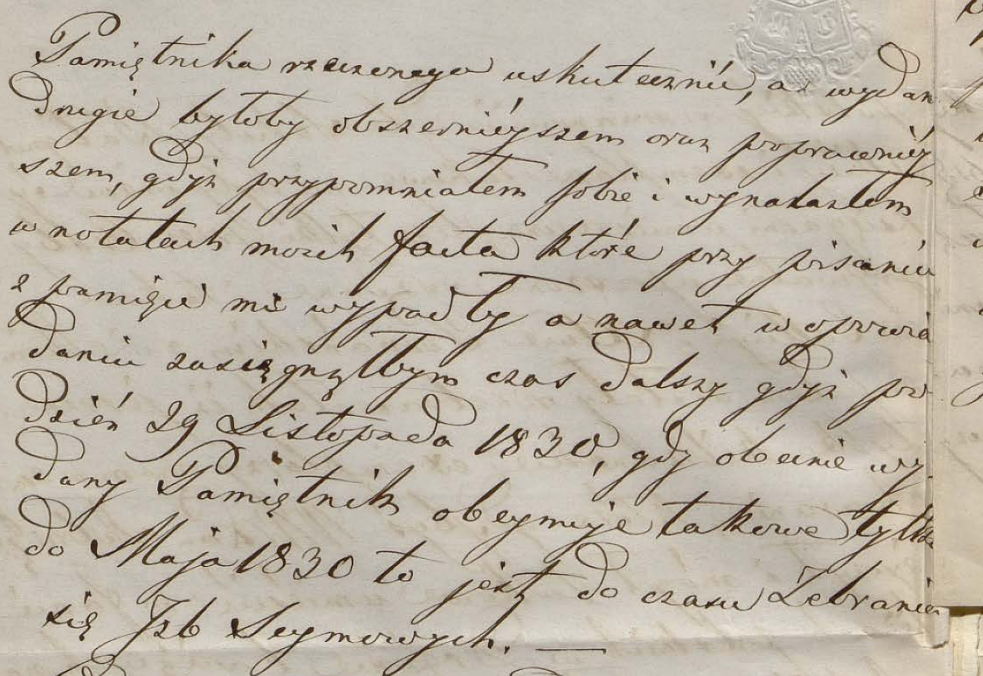 Pamiętnika rzeczonego uskutecznić, a wydan
drugie byłoby obszerniéyszem oraz poprawniéy
szem, gdyż przypomniałem sobie i wynalazłem
w notatach moich facta które przy pisaniu
z pamięci mi wypadły a nawet w opowia
daniu zasięgnąłbym czas dalszy gdyż po
dzień 29 Listopada 1830, gdy obecnie wy
dany Pamiętnik obeymuje takowe tylko
do Maja 1830 to jest do czasu Zebrania
się Jzb Seymowych. —